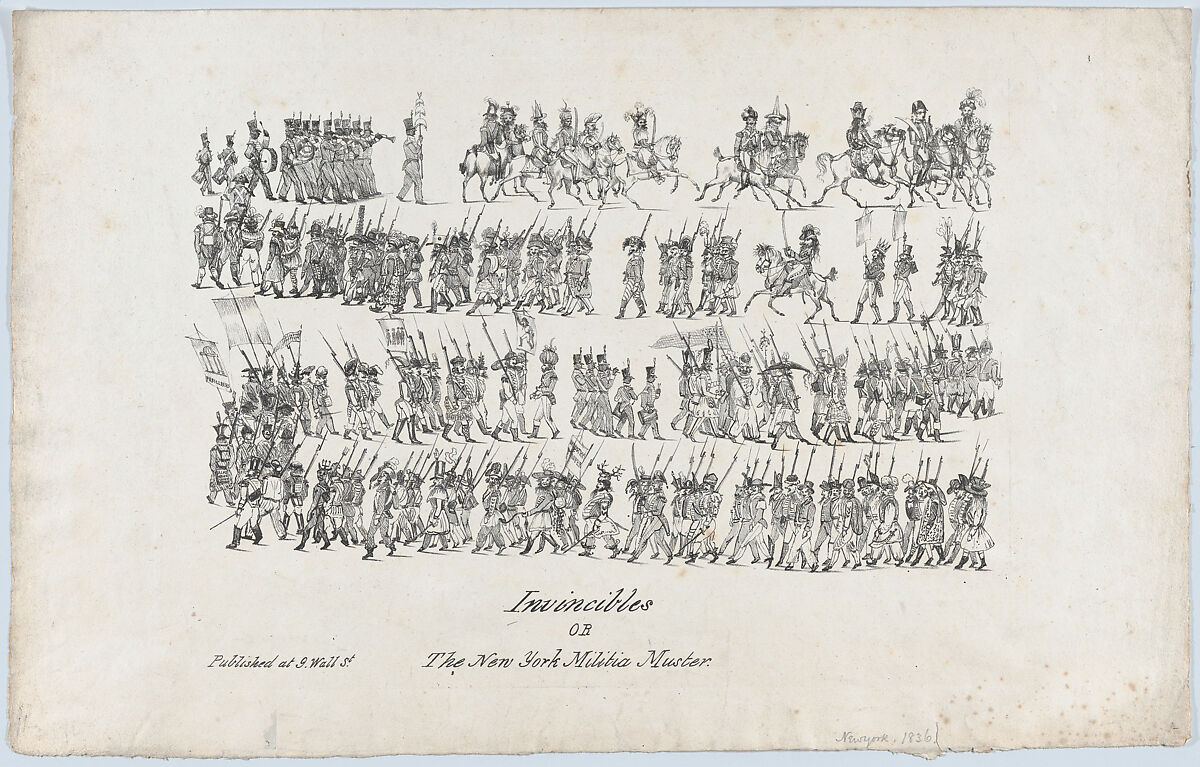 Invincibles
OR
The New York Militia Muster.
Published at 9. Wall St
Newyork. 1836